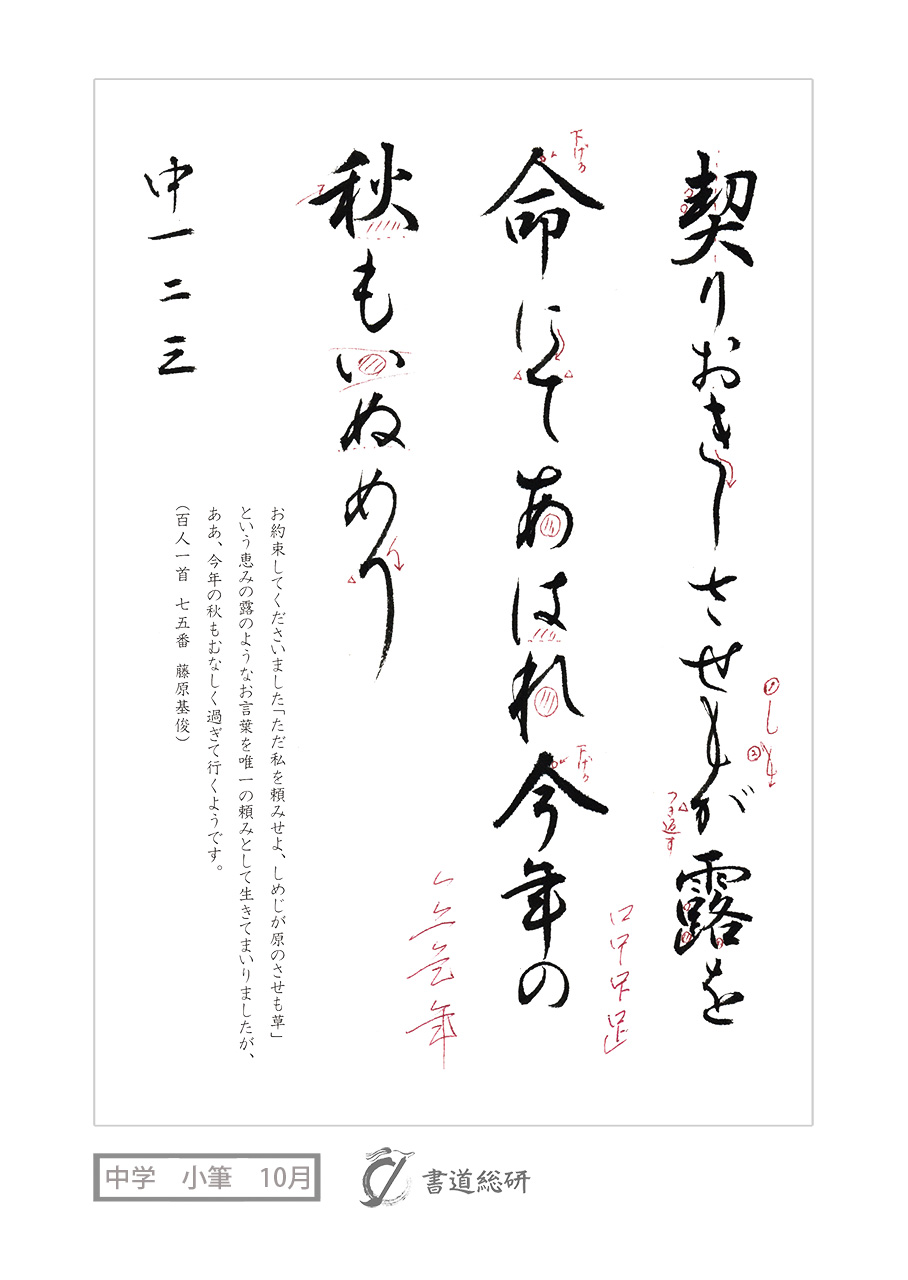 契りおきしさせもが露を
命にてあはれ今年の
秋もいぬめり
中一二三
下げる
下げる
①し
②も
つき返す
口甲足足
年
お約束してくださいました「ただ私を頼みせよ、しめじが原のさせも草」
という恵みの露のようなお言葉を唯一の頼みとして生きてまいりましたが、
ああ、今年の秋もむなしく過ぎて行くようです。
(百人一首 七五番 藤原基俊)
中学 小筆 10月
書道総研